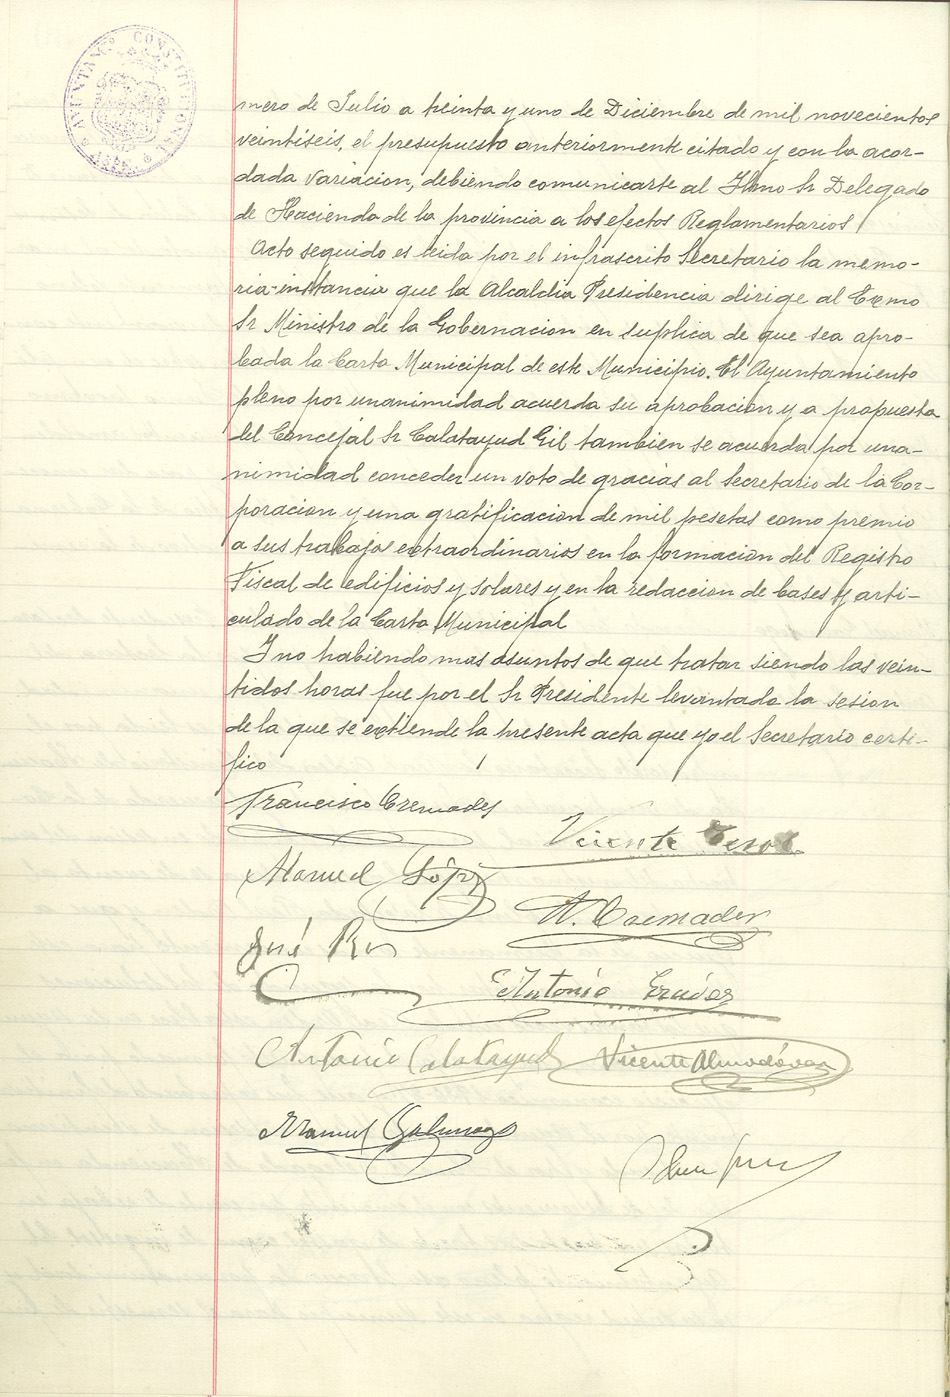 AYUNTAMTº CONSTITUCIONAL
mero de Julio a treinta y uno de Diciembre de mil novecientos
veintiseis, el presupuesto anteriormente citado y con la acor-
dada variacion, debiendo comunicarse al Ilmo Sr Delegado
de Hacienda de la provincia a los efectos Reglamentarios
Acto seguido es leida por el infrascrito Secretario la memo-
ria-instancia que la Alcaldia Presidencia dirige al Exmo
Sr Ministro de la Gobernacion en suplica de que sea apro-
bada la Carta Municipal de este Municipio. El Ayuntamiento
pleno por unanimidad acuerda su aprobacion y a propuesta
del Concejal Sr Calatayud Gil tambien se acuerda por una-
nimidad conceder un voto de gracias al Secretario de la Cor-
poracion y una gratificacion de mil pesetas como premio
a sus trabajos extraordinarios en la formacion del Registro
Fiscal de edificios y solares y en la redaccion de bases y arti-
culado de la Carta Municipal
I no habiendo mas asuntos de que tratar siendo las vein-
tidos horas fue por el Sr Presidente levantada la sesion
de la que se extiende la presente acta que yo el Secretario certi-
fico
Francisco Cremades
Vicente
Manuel López
A. Cremades
José
Antonio
Antonio Calatayud
Vicente Almodóvar
Manuel